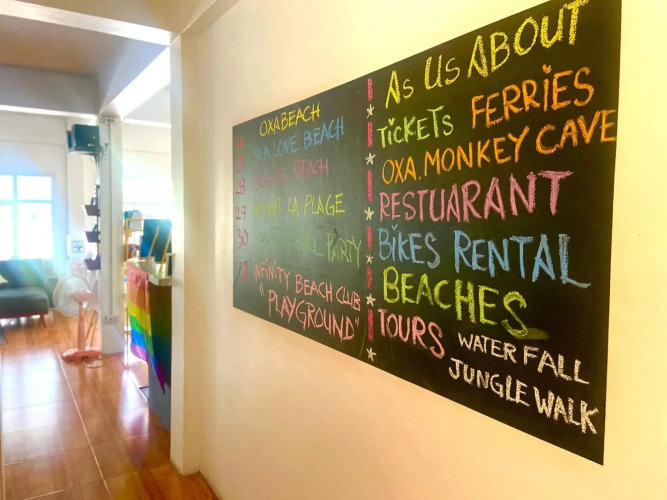 OXABEACH
LOVE BEACH
28 BEACH
29 LA PLAGE
30 PARTY
INFINITY BEACH CLUB
"PLAYGROUND"
AS US ABOUT
TICKETS FERRIES
OXA.MONKEY CAVE
RESTUARANT
BIKES RENTAL
BEACHES
TOURS WATER FALL
JUNGLE WALK